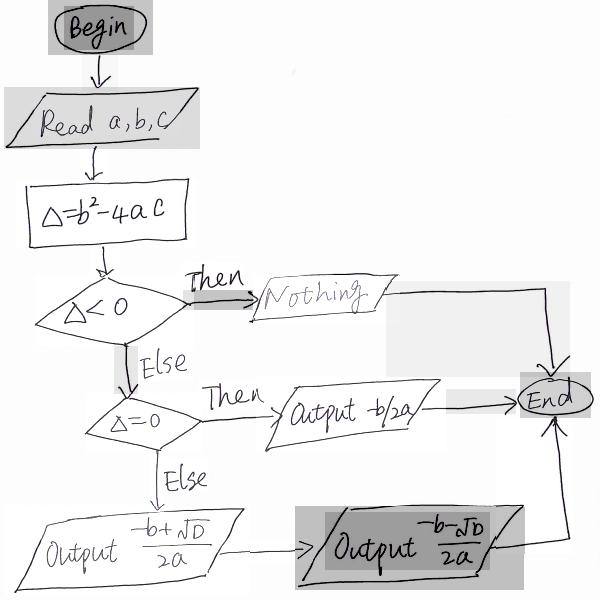 Begin
Read a,b,c
△=b²-4ac
△<0
Then
Nothing
Else
△=0
Then
Output -b/2a
End
Else
Output (-b+√D)/2a
Output (-b-√D)/2a